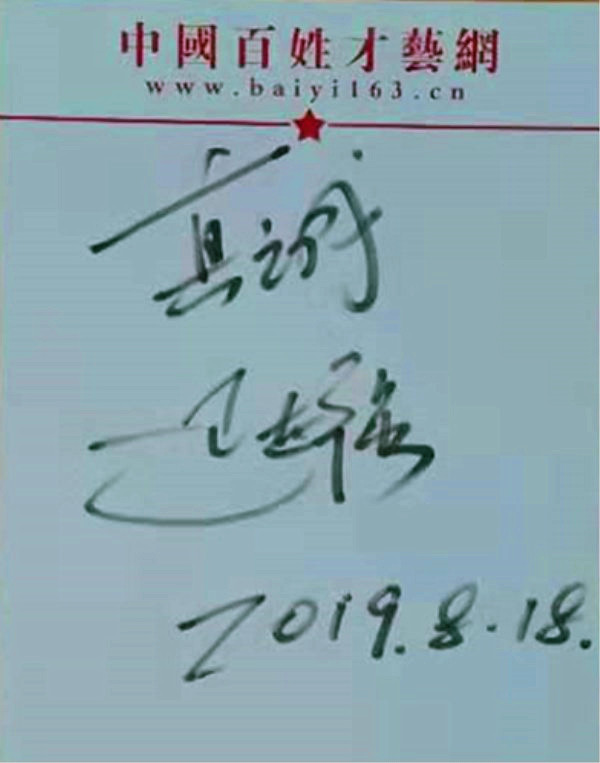 中國百姓才藝網
www.baiyi163.cn
真诚
2019.8.18.